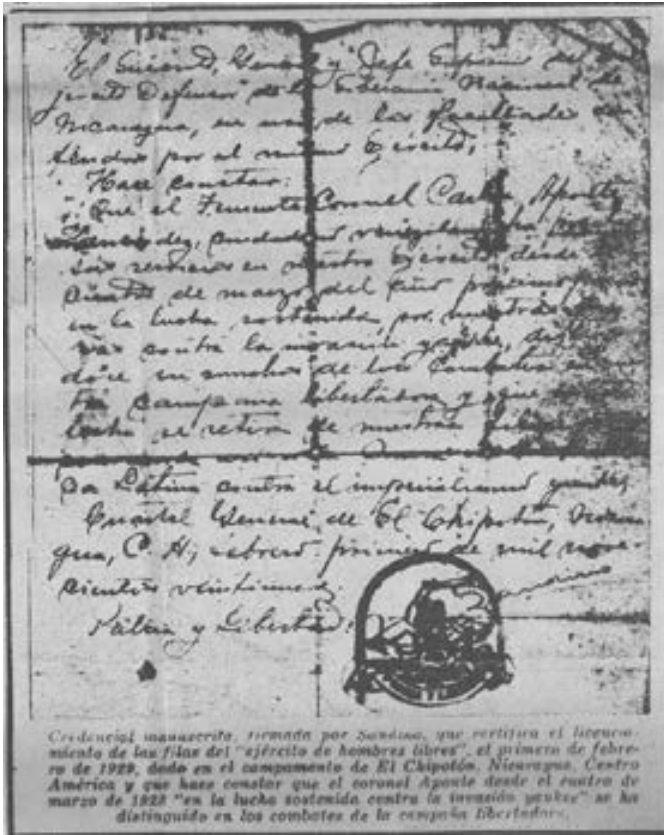 El Suscrito, General y Jefe Supremo del
Defensor de la Soberanía Nacional de
Nicaragua, en uso de las facultades
por el mismo Ejército,
Hace constar:
Que el Teniente Coronel Carlos Aponte
Hernández, ciudadano venezolano, ha
sus servicios en nuestro Ejército desde
de marzo del año próximo
en la lucha sostenida por nuestras
contra la invasión yankee,
en muchos de los combates en
campaña libertadora y que
se retira de nuestras
Latina contra el imperialismo yankee,
Cuartel General de El Chipotón,
gua, C. A., febrero primero de mil nove-
cientos veintinueve.
Patria y Libertad.
Sandino
Credencial manuscrita, firmada por Sandino, que certifica el licencia-
miento de las filas del "ejército de hombres libres", el primero de febre-
ro de 1929, dado en el campamento de El Chipotón, Nicaragua, Centro
América y que hace constar que el coronel Aponte desde el cuatro de
marzo de 1928 "en la lucha sostenida contra la invasión yankee" se ha
distinguido en los combates de la campaña libertadora.